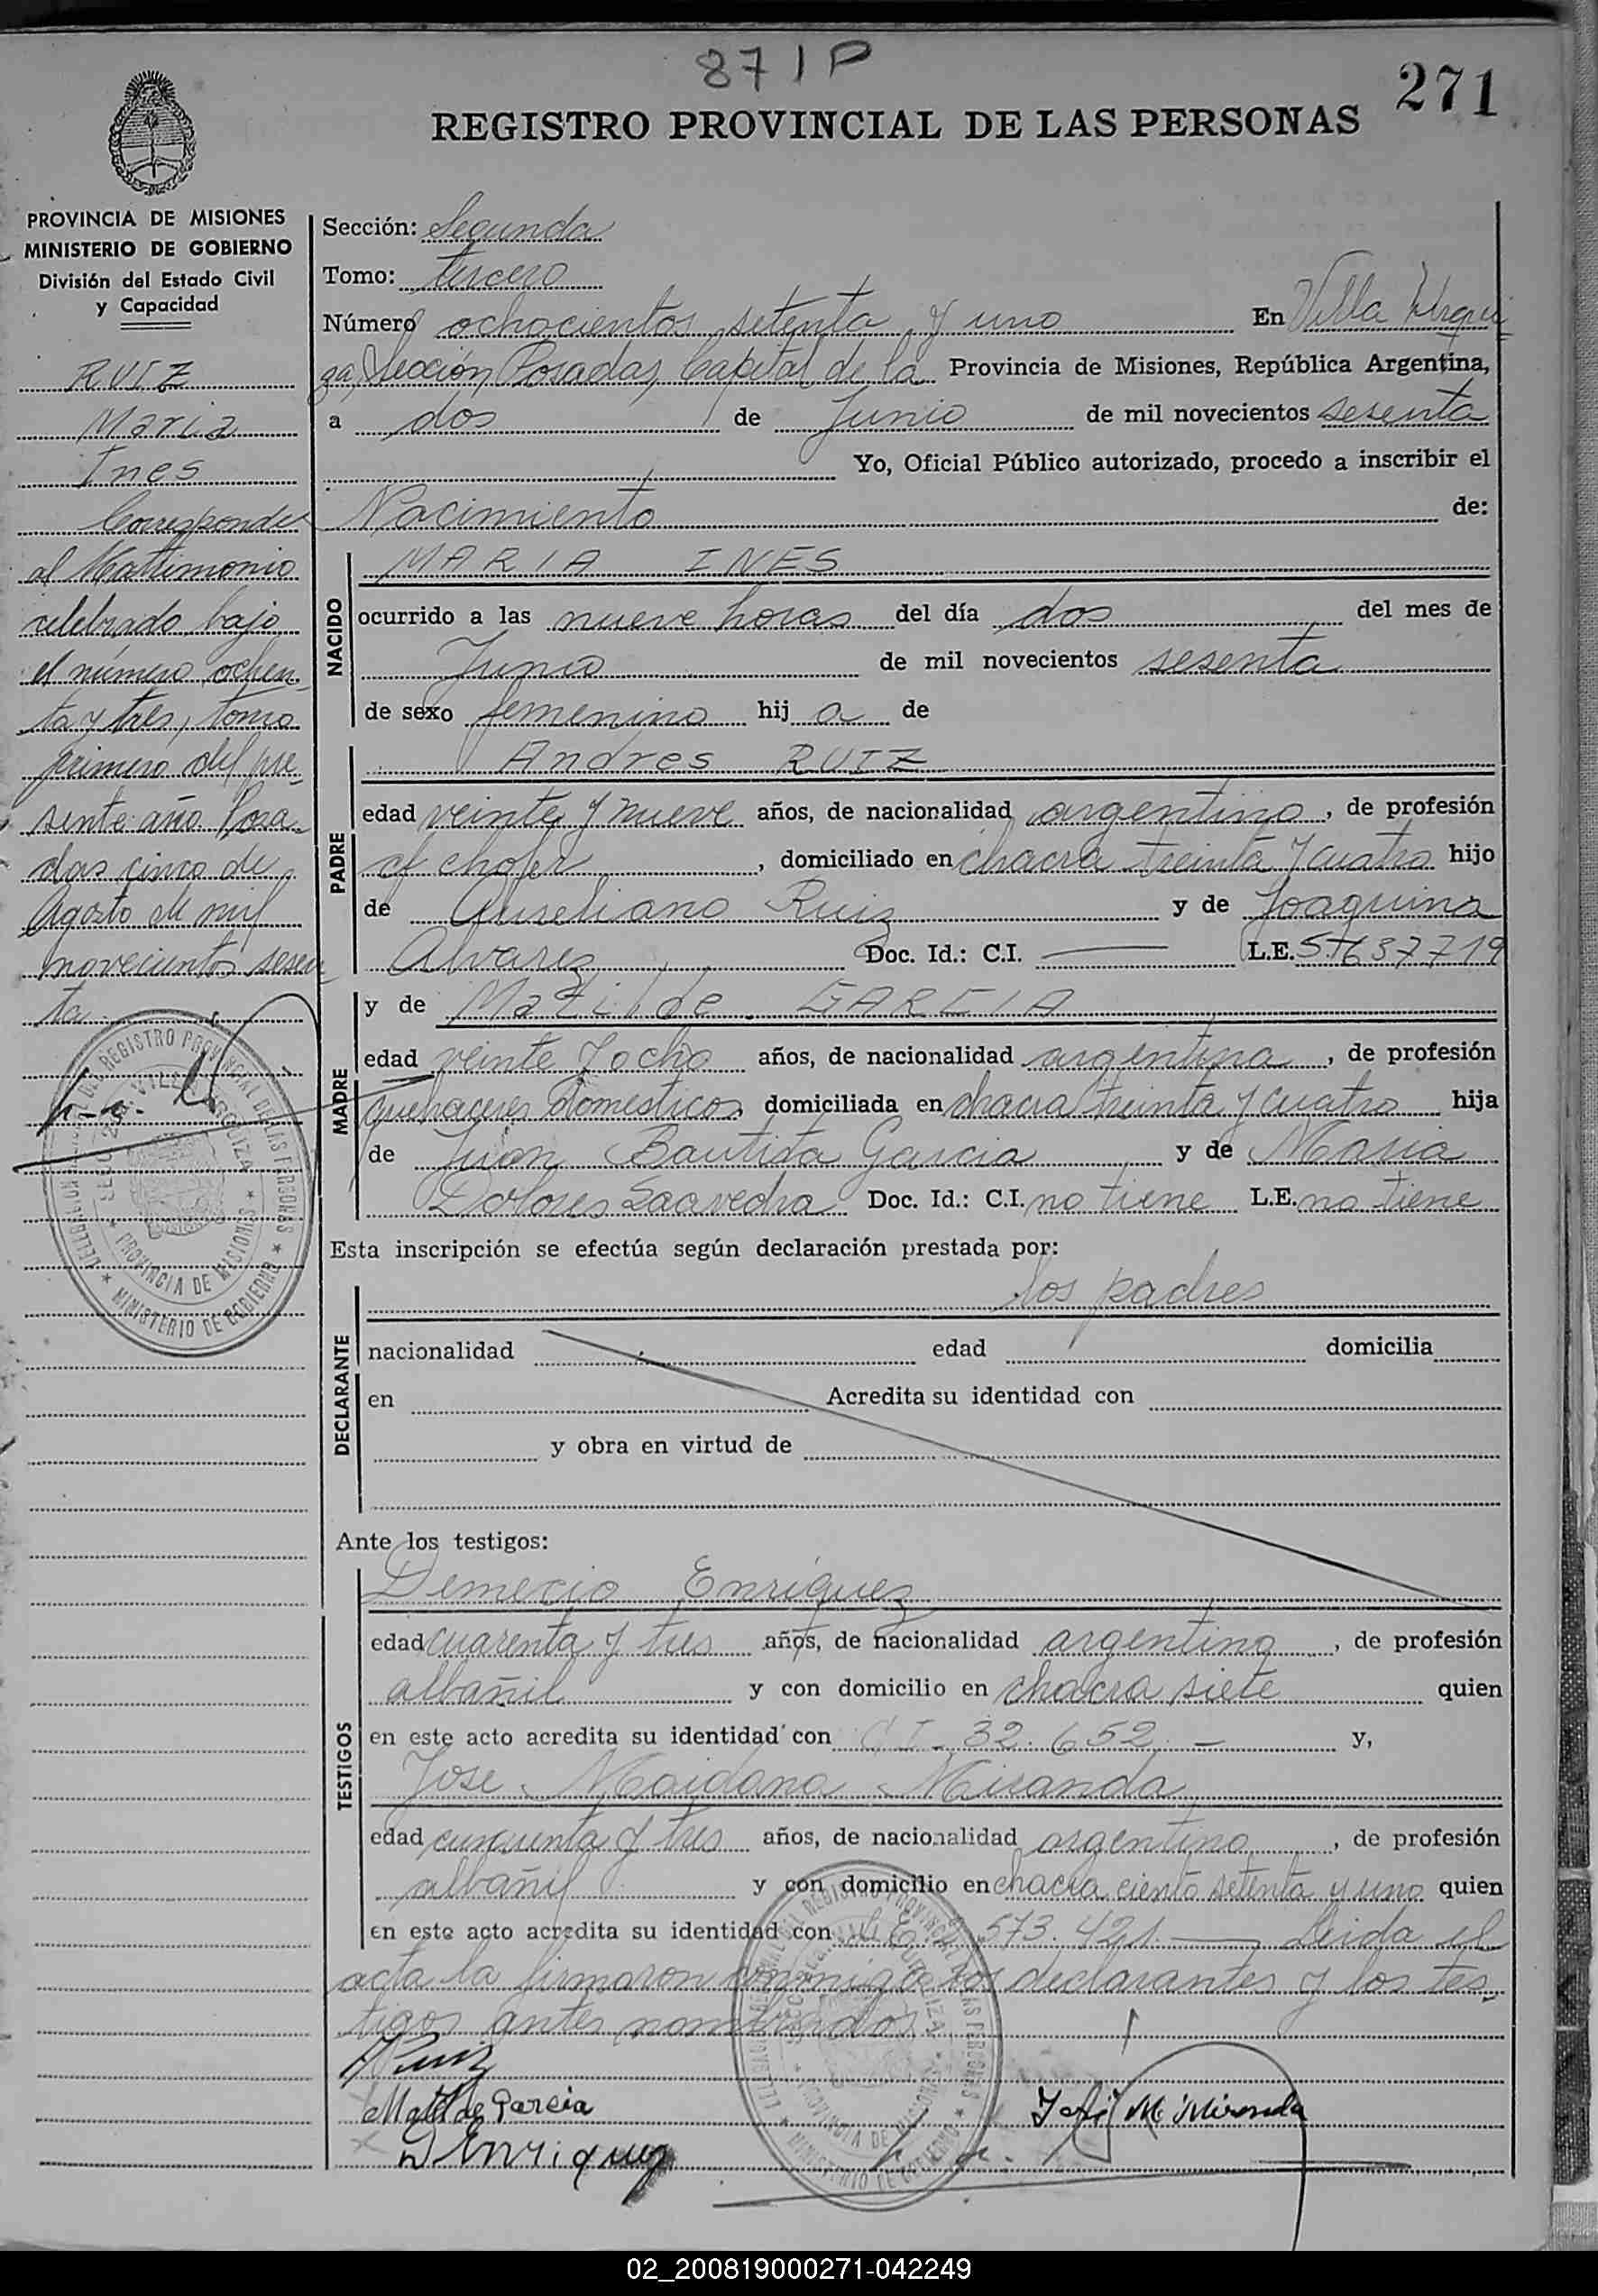 871P
271
REGISTRO PROVINCIAL DE LAS PERSONAS
PROVINCIA DE MISIONES
MINISTERIO DE GOBIERNO
División del Estado Civil
y Capacidad
RUIZ
Maria
Ines
Corresponde
al Matrimonio
celebrado bajo
el número ochen-
ta y tres, tomo
primero del pre-
sente año. Posa-
das cinco de
Agosto de mil
novecientos sesen
ta.
Sección: Segunda
Tomo: tercero
Número ochocientos setenta y uno En Villa Urqui
za, Sección Posadas, Capital de la Provincia de Misiones, República Argentina,
a dos de Junio de mil novecientos sesenta
Yo, Oficial Público autorizado, procedo a inscribir el
Nacimiento de:
NACIDO
MARIA INES
ocurrido a las nueve horas del día dos del mes de
Junio de mil novecientos sesenta
de sexo femenino hij a de
PADRE
Andres RUIZ
edad veinte y nueve años, de nacionalidad argentino, de profesión
chofer, domiciliado en chacra treinta y cuatro hijo
de Aureliano Ruiz y de Joaquina
Alvarez Doc. Id.: C.I. — L.E. 5.637.719
MADRE
y de Matilde GARCIA
edad veinte y ocho años, de nacionalidad argentina, de profesión
quehaceres domesticos domiciliada en chacra treinta y cuatro hija
de Juan Bautista Garcia y de Maria
Dolores Saavedra Doc. Id.: C.I. no tiene L.E. no tiene
Esta inscripción se efectúa según declaración prestada por:
DECLARANTE
los padres
nacionalidad edad domicilia
en Acredita su identidad con
y obra en virtud de
Ante los testigos:
TESTIGOS
Demecio Enriquez
edad cuarenta y tres años, de nacionalidad argentino, de profesión
albañil y con domicilio en chacra siete quien
en este acto acredita su identidad con C I - 32.652. — y,
Jose Maidana Miranda
edad cuarenta y tres años, de nacionalidad argentino, de profesión
albañil y con domicilio en chacra ciento setenta y uno quien
en este acto acredita su identidad con 573.421. — Leida el
acta la firmaron conmigo los declarantes y los tes-
tigos antes nombrados.
A Ruiz
Matilde Garcia
D Enriquez
José M Miranda
PROVINCIA DE MISIONES
MINISTERIO DE GOBIERNO
02_200819000271-042249